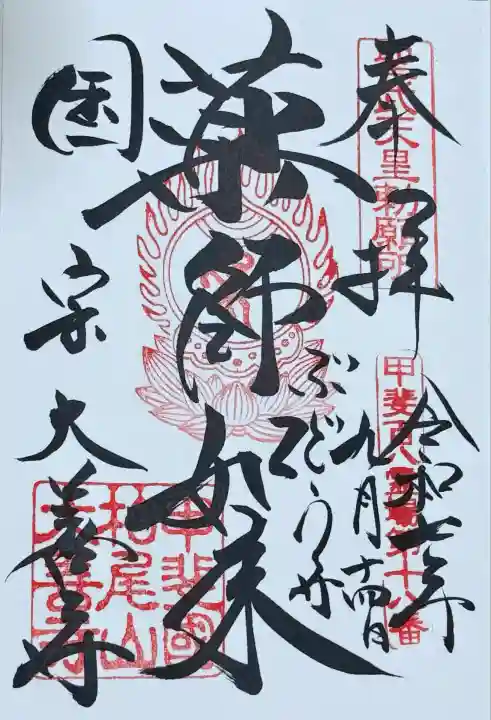 奉拝
令和七年
九月十四日
薬師如来
ぶどう寺
国宝
大善寺
甲斐百八霊場第十八番
甲斐國
柏尾山
大善寺